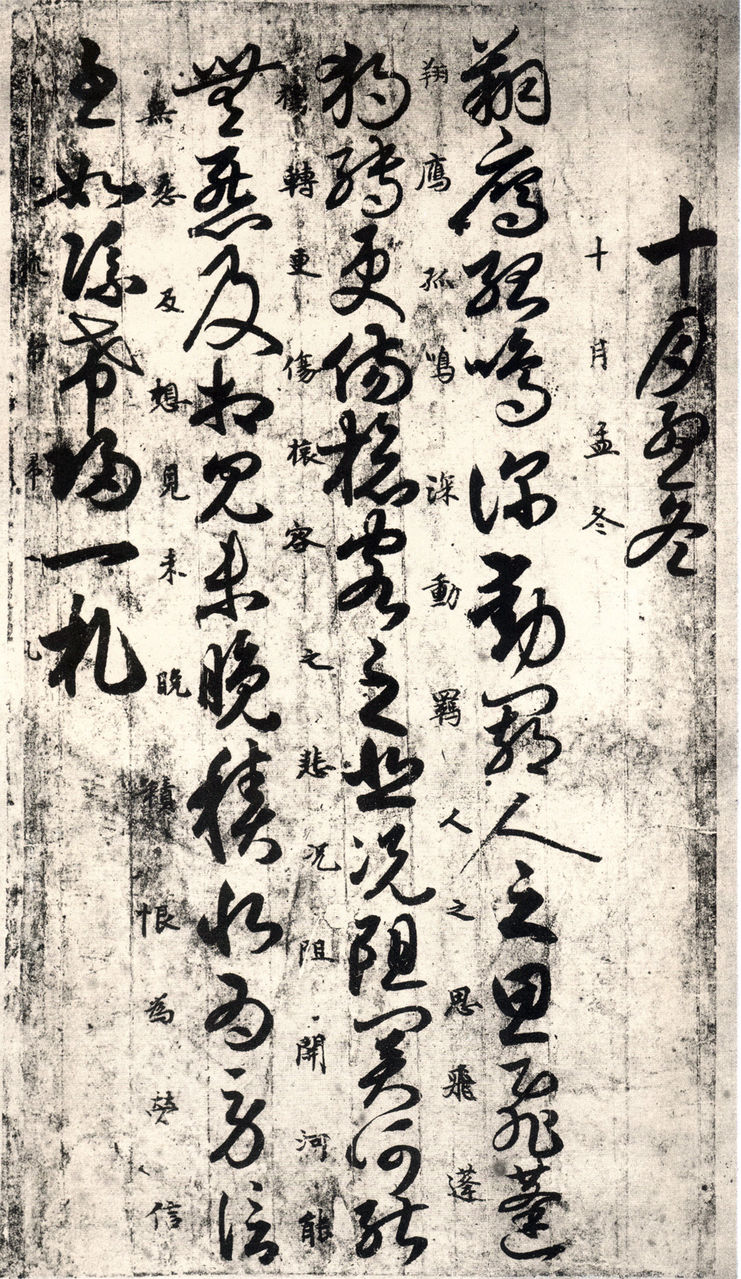 十月孟冬
十月孟冬
翔鷹孤鳴深動羈人之思飛蓬
翔鷹孤鳴深動羈人之思飛蓬
獨轉更傷懷客之悲况阻關河能
獨轉更傷懷客之悲况阻開河能
無及相見未晚積恨為勞信
無及想見未晚積恨為勞信
至如希歸一札